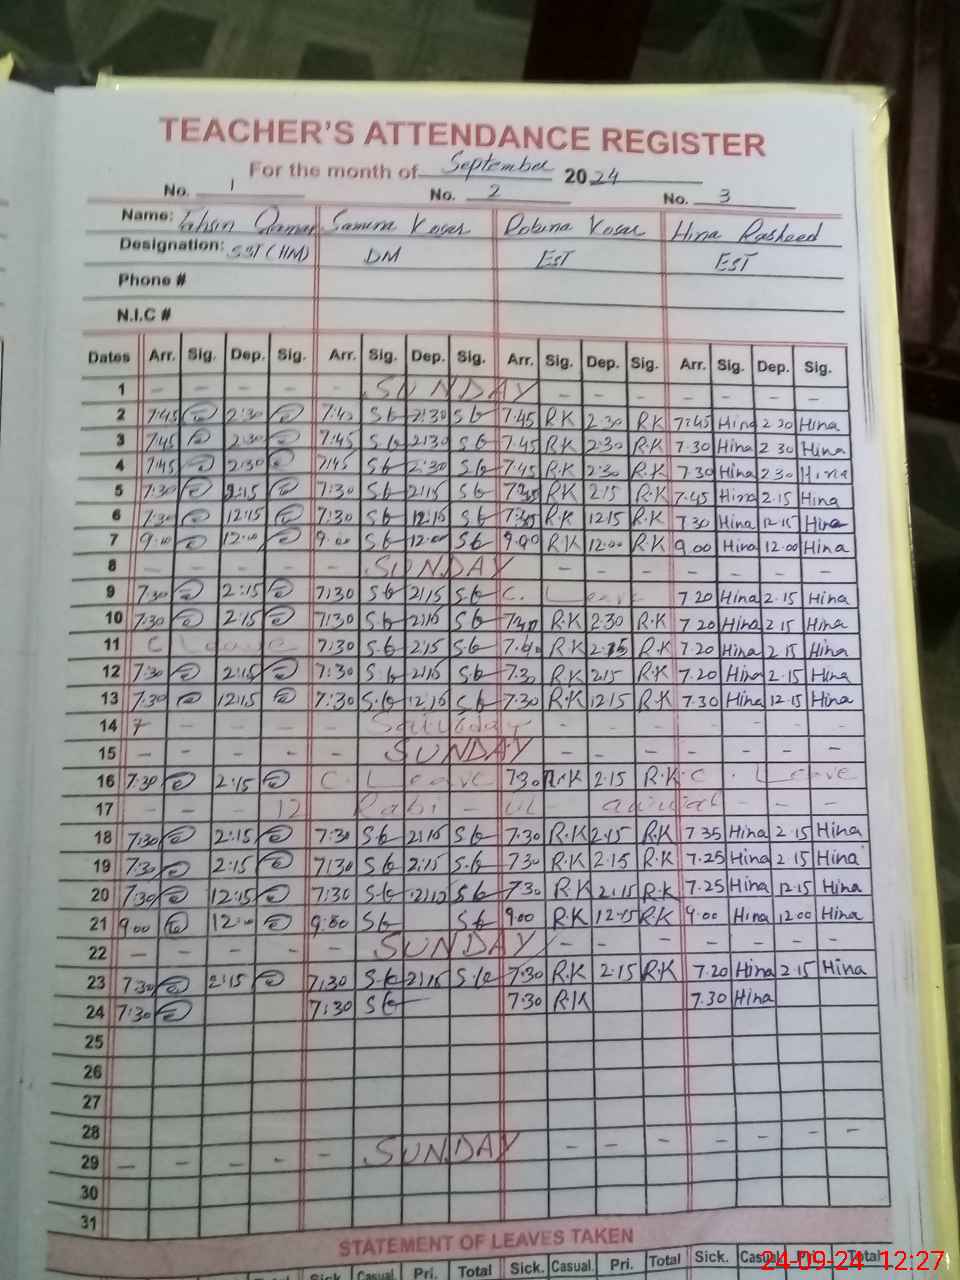 TEACHER'S ATTENDANCE REGISTER
For the month of September 2024
No. 1 No. 2 No. 3
Name: Tahsin Qamar Samina Kosar Robina Kosar Hina Rasheed
Designation: SST (HM) DM EST EST
Phone #
N.I.C #
Dates Arr. Sig. Dep. Sig. Arr. Sig. Dep. Sig. Arr. Sig. Dep. Sig. Arr. Sig. Dep. Sig.
1 - - - - - SUNDAY - - - - - -
2 7:45 2:30 7:45 2:30 7.45 R.K 2.30 R.K 7:45 Hina 2 30 Hina
3 7:45 2:30 7:45 2:30 7.45 R.K 2.30 R.K 7.30 Hina 2 30 Hina
4 7:45 2:30 7:45 2:30 7.45 R.K 2:30 R.K 7.30 Hina 2 30 Hina
5 7:30 2:15 7:30 2:15 R.K 2.15 R.K 7.45 Hina 2.15 Hina
6 7:30 12:15 7:30 12:15 R.K 12.15 R.K 7 30 Hina 12.15 Hina
7 9:00 12:00 9:00 12:00 9.00 R.K 12.00 R.K 9.00 Hina 12.00 Hina
8 - - - - - SUNDAY - - - - - -
9 7:30 2:15 7:30 2:15 C. Leave 7 20 Hina 2.15 Hina
10 7:30 2:15 7:30 2:15 R.K 2.30 R.K 7.20 Hina 2 15 Hina
11 C Leave 7:30 2:15 R.K R.K 7.20 Hina 2 15 Hina
12 7:30 2:15 7:30 2:15 7.30 R.K 2.15 R.K 7.20 Hina 2.15 Hina
13 7:30 12:15 7:30 12:15 7.30 R.K 12.15 R.K 7.30 Hina 12.15 Hina
14 - - - - Saturday - - - - - -
15 - - - - - SUNDAY - - - - - -
16 7:30 2:15 C. Leave 7.30 R.K 2.15 R.K C. Leave
17 - - - 12 Rabi - ul awwal - - -
18 7:30 2:15 7:30 2:15 7.30 R.K 2.15 R.K 7 35 Hina 2.15 Hina
19 7:30 2:15 7:30 2:15 7.30 R.K 2.15 R.K 7.25 Hina 2.15 Hina
20 7:30 12:15 7:30 7.30 R.K R.K 7.25 Hina 12.15 Hina
21 9:00 12:00 9:00 9.00 R.K R.K 9.00 Hina 12.00 Hina
22 - - - - - SUNDAY - - - - - -
23 7:30 2:15 7:30 2:15 7.30 R.K 2.15 R.K 7.20 Hina 2.15 Hina
24 7:30 7:30 7.30 R.K 7.30 Hina
25
26
27
28
29 - - - - - SUNDAY - - - - - - - -
30
31
STATEMENT OF LEAVES TAKEN
Total Sick Casual Pri. Total Sick. Casual. Pri. Total Sick. Casual Pri. Total
24-09-24 12:27